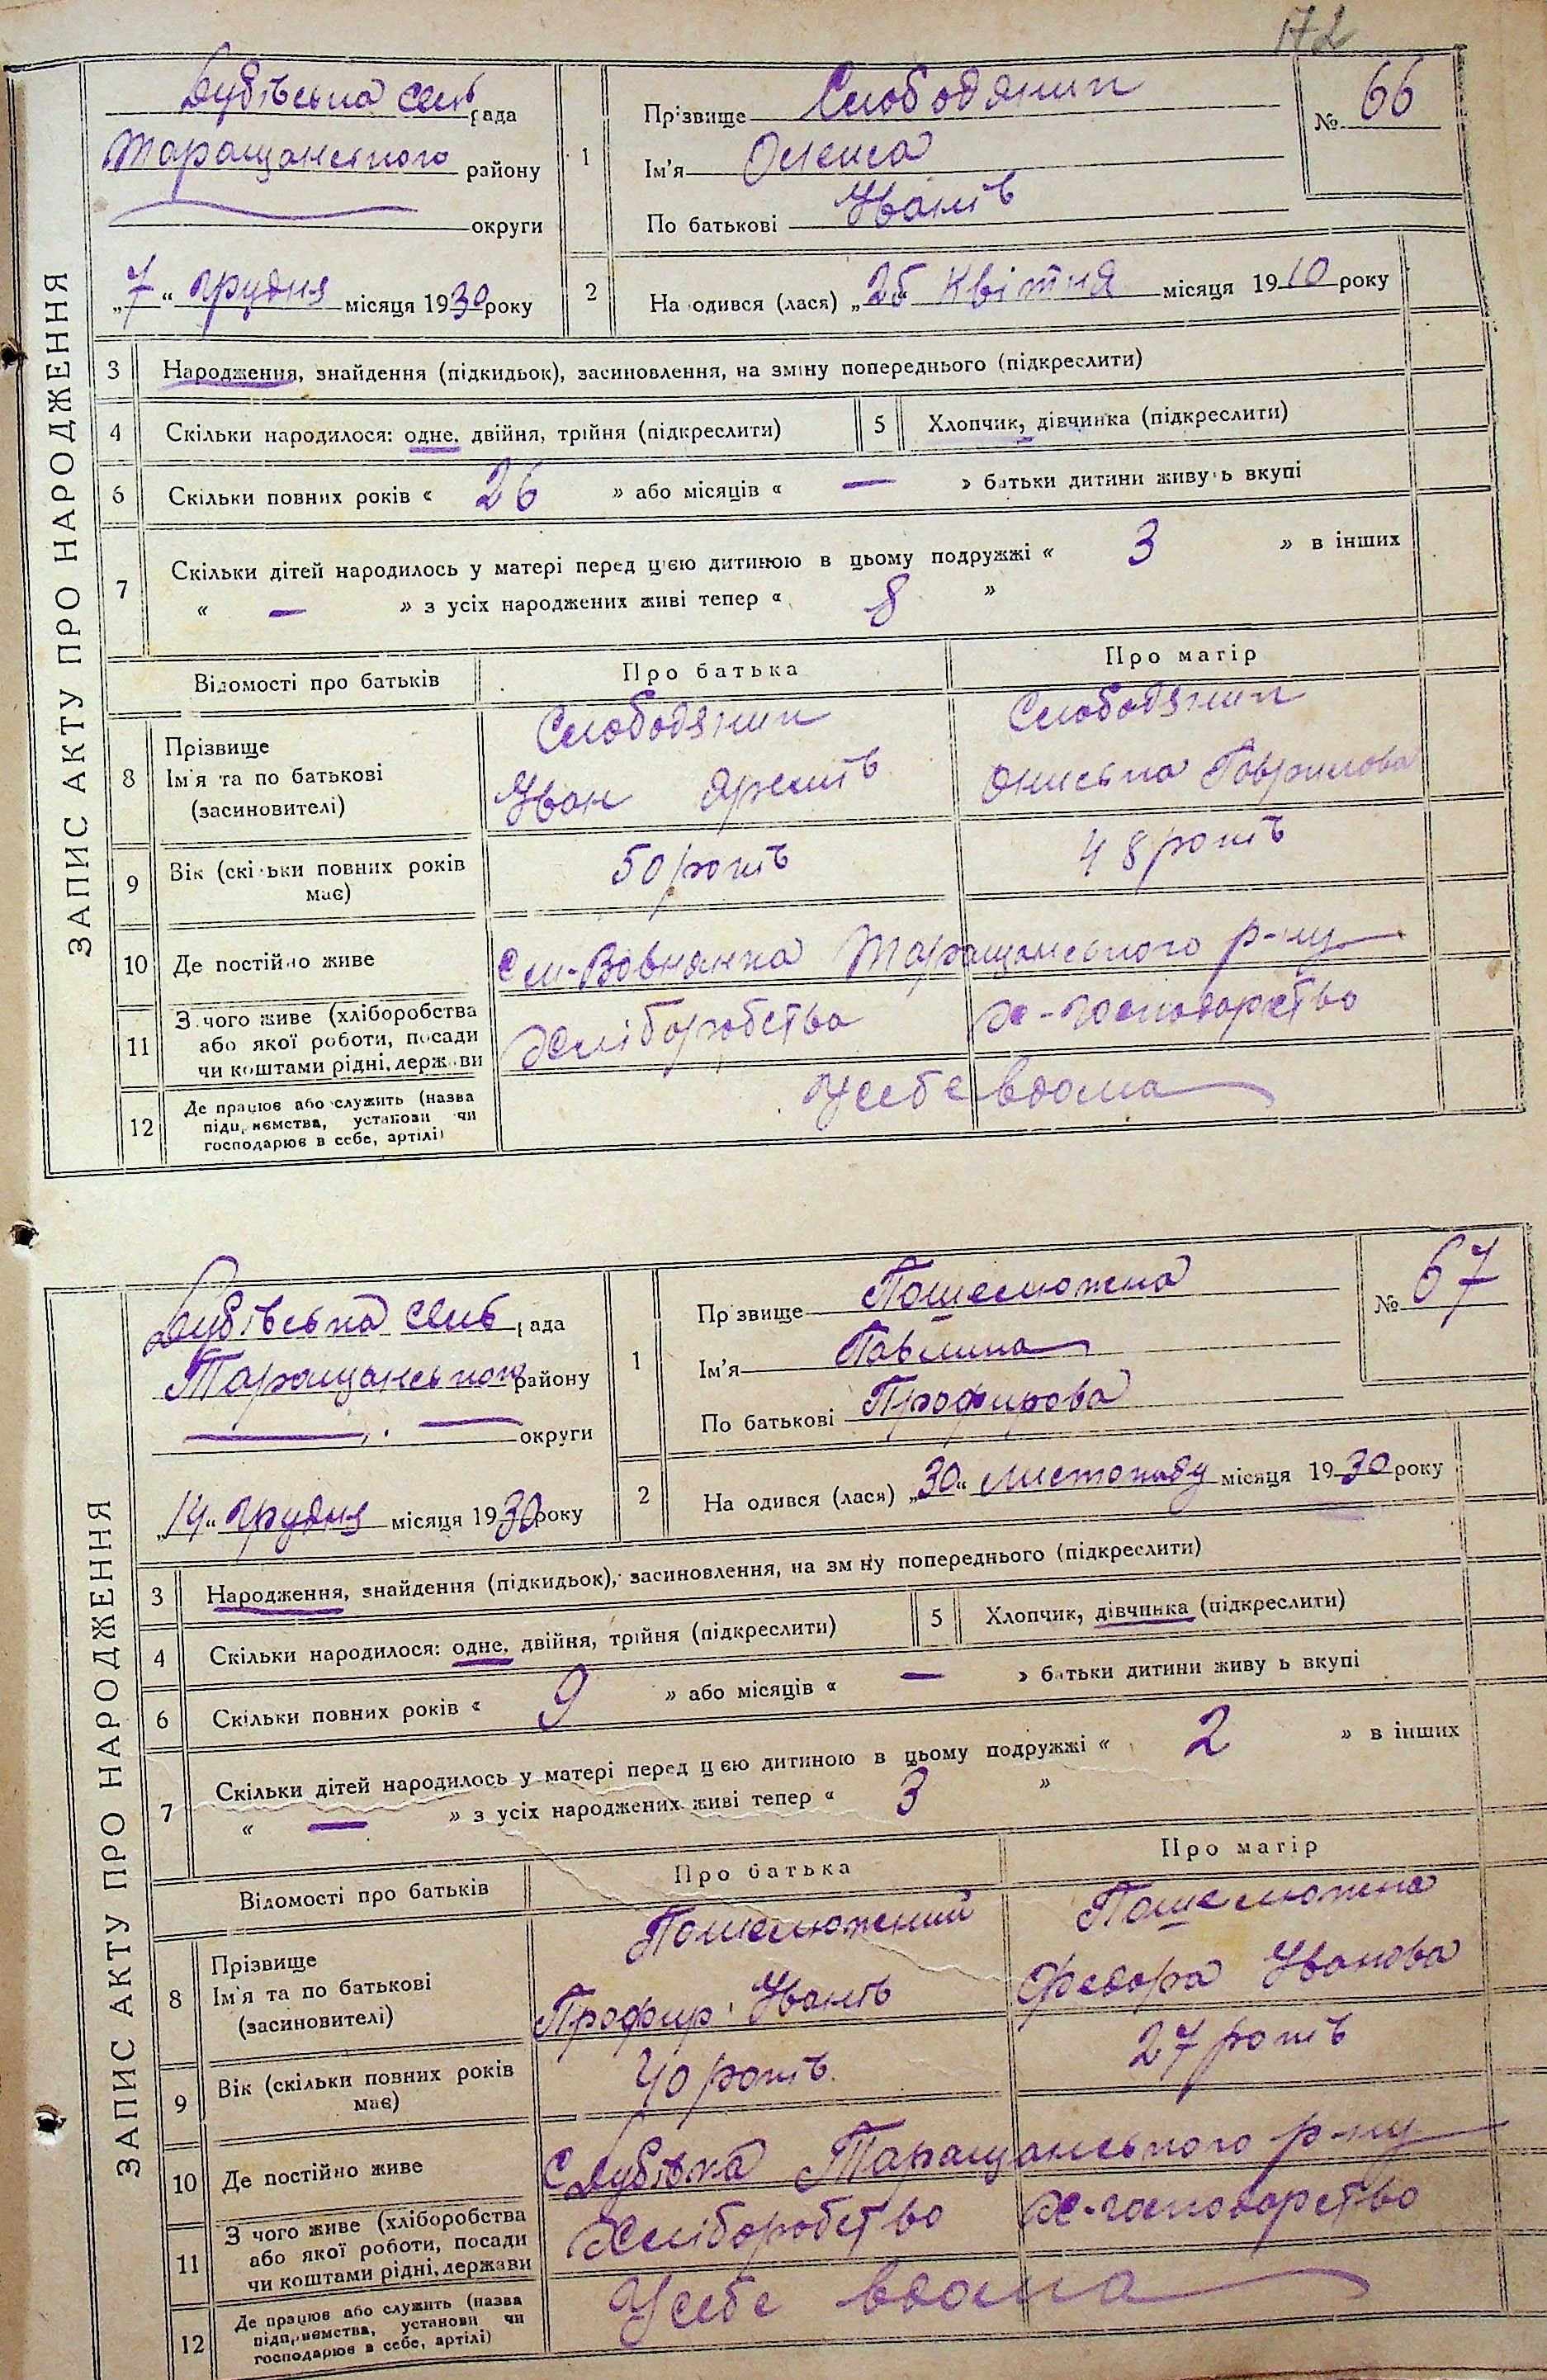 172
ЗАПИС АКТУ ПРО НАРОДЖЕННЯ
Дубівська сель рада
Таращанського району
округи
„7“ грудня місяця 1930 року
1
Прізвище Слободяник
Ім'я Олекса
По батькові Іванів
№ 66
2
На одився (лася) „25 квітня місяця 1910 року
3 Народження, знайдення (підкидьок), засиновлення, на зміну попереднього (підкреслити)
4 Скільки народилося: одне, двійня, трійня (підкреслити) 5 Хлопчик, дівчинка (підкреслити)
6 Скільки повних років « 26 » або місяців « — » батьки дитини живуть вкупі
7 Скільки дітей народилось у матері перед цією дитиною в цьому подружжі « 3 » в інших
« — » з усіх народжених живі тепер « 8 »
Відомості про батьків Про батька Про матір
8 Прізвище
Ім'я та по батькові
(засиновителі)
Слободяник Слободяник
Іван Яремів Ониська Гаврилова
9 Вік (скільки повних років
має)
50 років 48 років
10 Де постійно живе Сл-Вовнянка Таращанського р-ну
11 З чого живе (хліборобства
або якої роботи, посади
чи коштами рідні, держави
Хліборобства х-господарство
12 Де працює або служить (назва
підприємства, установи чи
господарює в себе, артілі)
У себе вдома
ЗАПИС АКТУ ПРО НАРОДЖЕННЯ
Дубівська сель рада
Таращанського району
округи
„14“ грудня місяця 1930 року
1
Прізвище Пошелюжна
Ім'я Павлина
По батькові Профирова
№ 67
2
На одився (лася) „30“ листопаду місяця 1930 року
3 Народження, знайдення (підкидьок), засиновлення, на зміну попереднього (підкреслити)
4 Скільки народилося: одне, двійня, трійня (підкреслити) 5 Хлопчик, дівчинка (підкреслити)
6 Скільки повних років « 9 » або місяців « — » батьки дитини живуть вкупі
7 Скільки дітей народилось у матері перед цією дитиною в цьому подружжі « 2 » в інших
« — » з усіх народжених живі тепер « 3 »
Відомості про батьків Про батька Про матір
8 Прізвище
Ім'я та по батькові
(засиновителі)
Пошелюжний Пошелюжна
Профир Іванів Федора Іванова
9 Вік (скільки повних років
має)
40 років 27 років
10 Де постійно живе С Дубівка Таращанського р-ну
11 З чого живе (хліборобства
або якої роботи, посади
чи коштами рідні, держави
Хліборобство х-господарство
12 Де працює або служить (назва
підприємства, установи чи
господарює в себе, артілі)
У себе вдома